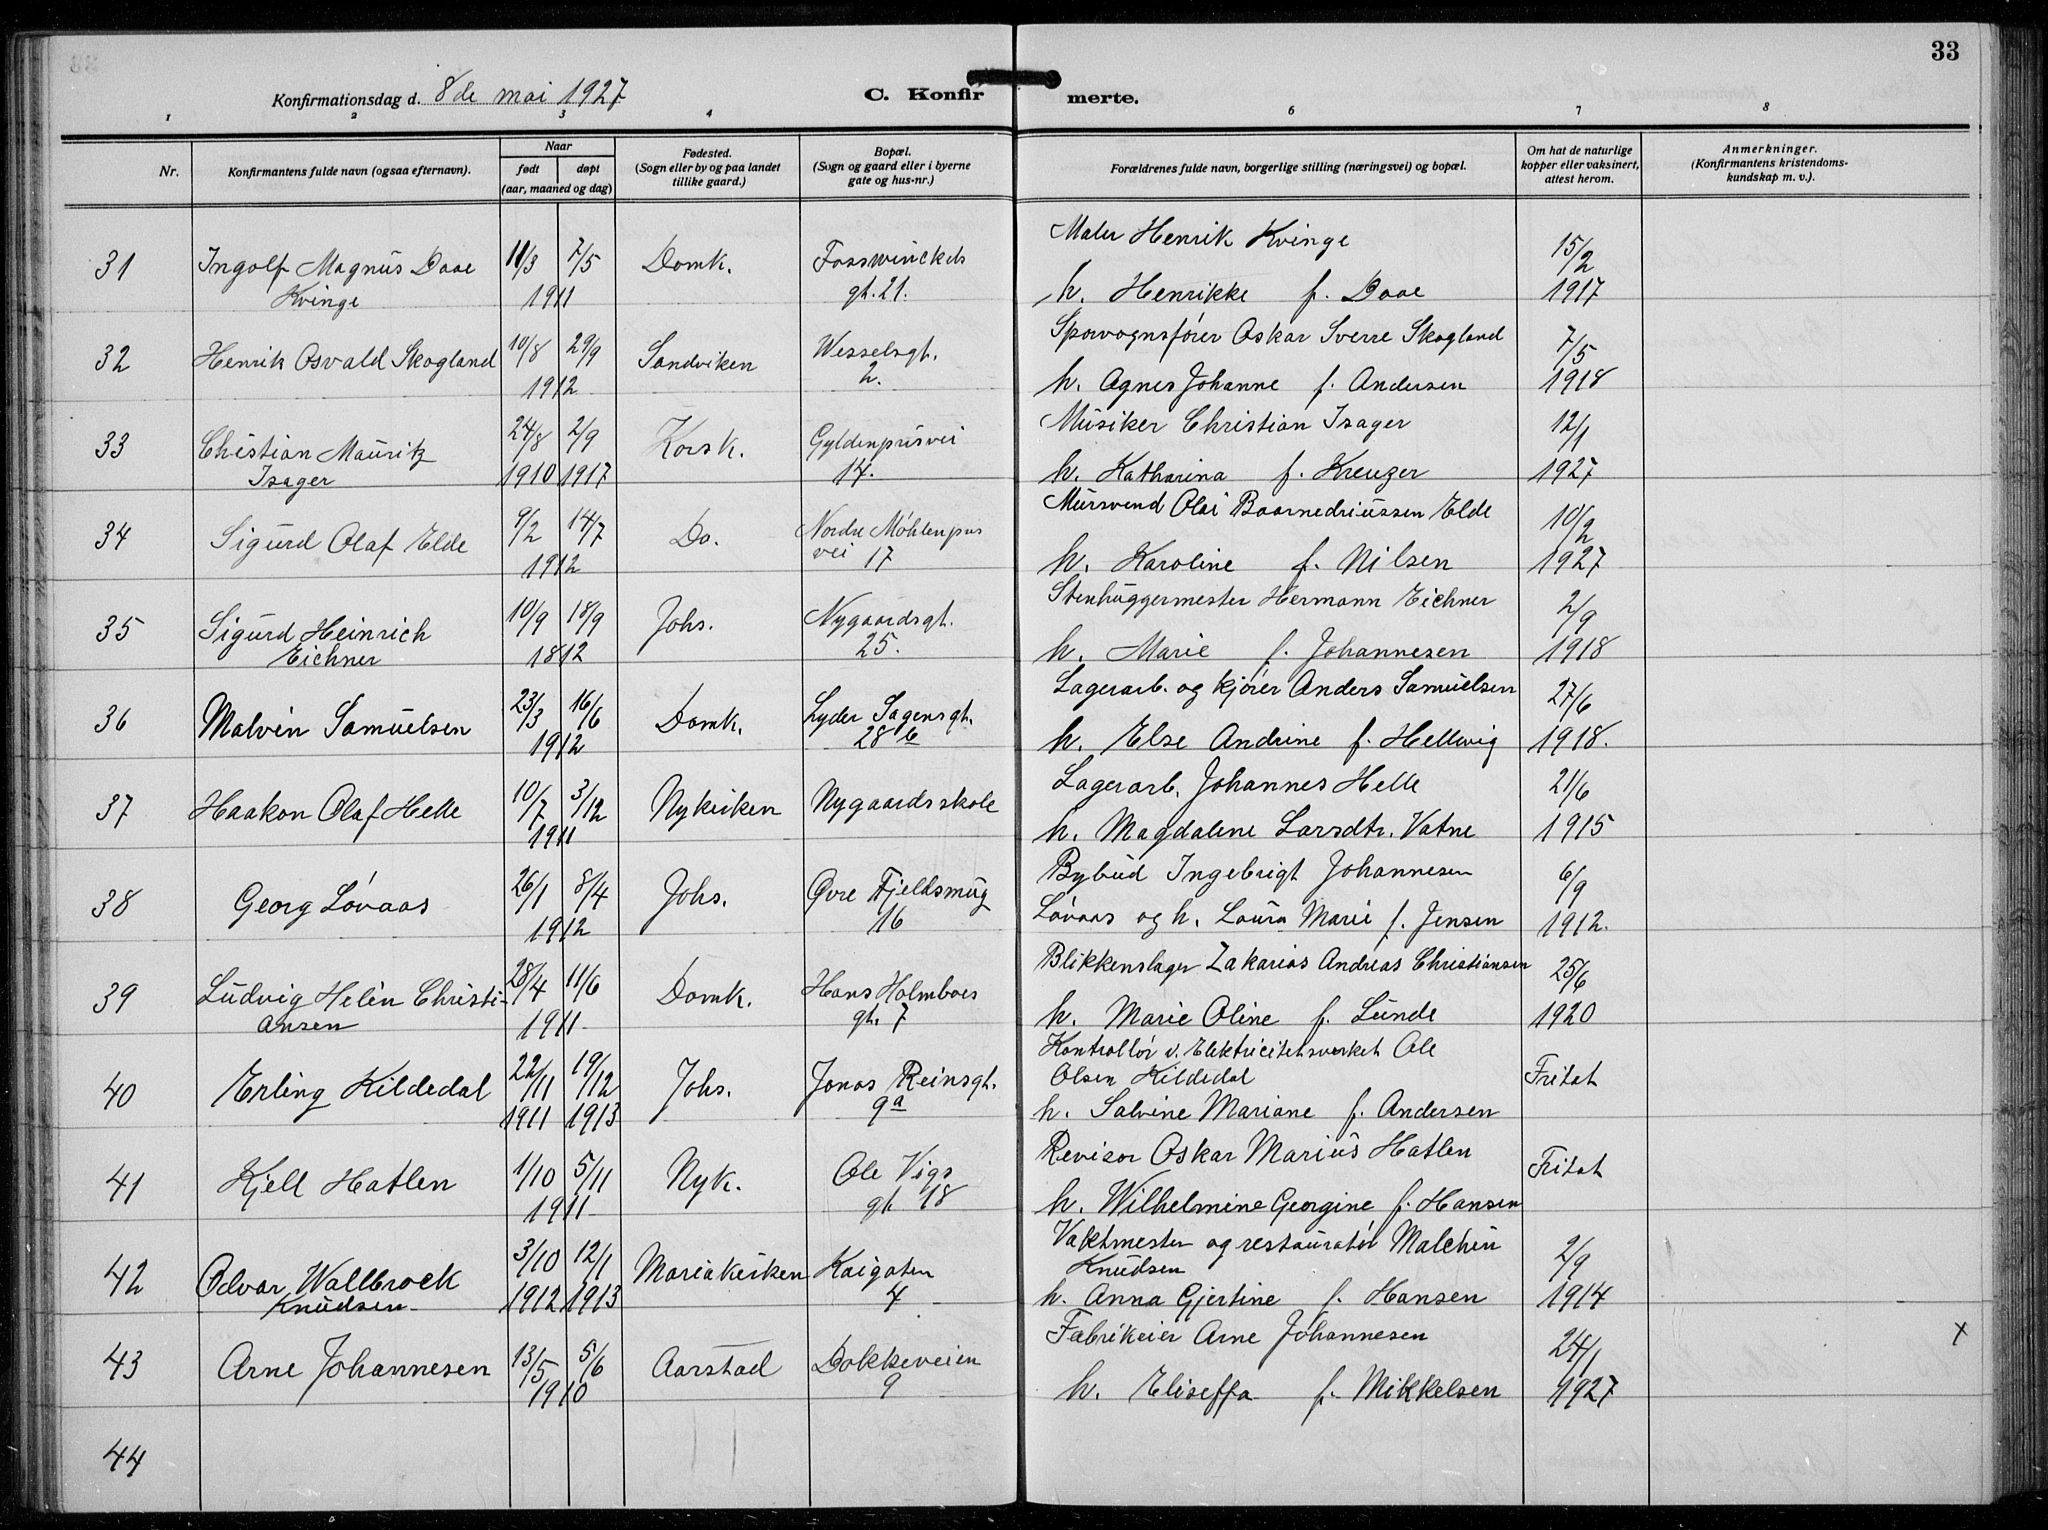 33
Konfirmationsdag d. 8de mai 1927 C. Konfirmerte.
1 2 3 4 6 7 8
Nr. Konfirmantens fulde navn (ogsaa efternavn). Naar født døpt (aar, maaned og dag) Fødested. (Sogn eller by og paa landet tillike gaard.) Bopæl. (Sogn og gaard eller i byerne gate og hus-nr.) Forældrenes fulde navn, borgerlige stilling (næringsvei) og bopæl. Om hat de naturlige kopper eller vaksinert, attest herom. Anmerkninger. (Konfirmantens kristendoms-kundskap m. v.).
Maler Henrik Kvinge
31 Ingolf Magnus Daae 11/3 7/5 Domk. Fosswinckels 15/2
Kvinge 1911 gt. 21. h. Henrikke f. Daae 1917
Sporvognsfører Oskar Sverre Skogland
32 Henrik Osvald Skogland 10/8 29/9 Sandviken Wesselsgt. 7/5
1912 2. h. Agnes Johanne f. Andersen 1918
Musiker Christian Isager
33 Christian Mauritz 24/8 2/9 Korsk. Gyldenprisvei 12/1
Isager 1910 1917 14. h. Katharina f. Kreuzer 1927
Mursvend Olai Baarnedriussen Elde
34 Sigurd Olaf Elde 9/2 14/7 Do. Nordre Møhlenpris 10/2
1912 vei 17 h. Karoline f. Nilsen 1927
Stenhuggermester Hermann Eichner
35 Sigurd Heinrich 10/9 18/9 Johs. Nygaardsgt. 2/9
Eichner 1812 25. h. Marie f. Johannesen 1918
Lagerarb. og kjører Anders Samuelsen
36 Malvin Samuelsen 23/3 16/6 Domk. Lyder Sagensgt. 27/6
1912 28 b h. Else Andrine f. Hellwig 1918.
Lagerarb. Johannes Helle
37 Haakon Olaf Helle 10/7 3/12 Nykirken Nygaardsskole 21/6
1911 h. Magdalene Larsdtr. Vatne 1915
Bybud Ingebrigt Johannesen
38 Georg Løvaas 26/1 8/4 Johs. Øvre Fjeldsmug 6/9
1912 16 Løvaas og h. Laura Marie f. Jensen 1912.
Blikkenslager Zakarias Andreas Christiansen
39 Ludvig Helin Christi- 28/4 11/6 Domk. Hans Holmboes 25/6
ansen 1911 gt. 7 h. Marie Oline f. Lunde 1920
Kontrollør v. Elektricitetsverket Ole
40 Erling Kildedal 22/11 19/12 Johs. Jonas Reinsgt. Olsen Kildedal Fritat
1911 1913 9a h. Salvine Mariane f. Andersen
Revisor Oskar Marius Hatlen
41 Kjell Hatlen 1/10 5/11 Nyk. Ole Vigs Fritat
1911 gt 18 h. Wilhelmine Georgine f. Hansen
Vaktmester og restauratør Malchin
42 Odvar Wallbrock 3/10 12/1 Mariakirken Kaigaten Knudsen 2/9
Knudsen 1912 1913 4 h. Anna Gjertine f. Hansen 1914
Fabrikeier Arne Johannesen x
43 Arne Johannesen 13/5 5/6 Aarstad Dokkeveien 24/1
1910 9 h. Eliseffa f. Mikkelsen 1927
44